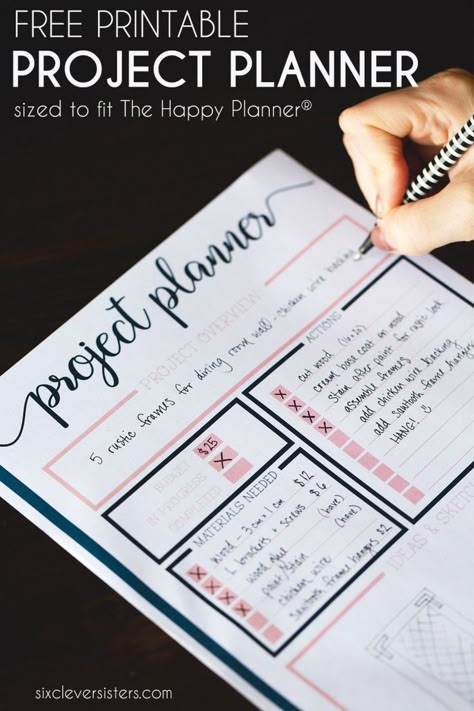 FREE PRINTABLE
PROJECT PLANNER
sized to fit The Happy Planner®
project planner
PROJECT OVERVIEW
5 rustic frames for dining room wall - chicken wire backing
BUDGET $25
IN PROGRESS X
COMPLETED
MATERIALS NEEDED
X wood - $12
X L brackets + screws $6
X wood glue (have)
X paint/stain (have)
chicken wire
sawtooth frame hangers $2
ACTIONS
X cut wood
X cream base coat on wood
X stain after paint for rustic look
X assemble frames
add chicken wire backing
add sawtooth frame hangers
HANG!
IDEAS &
sixcleversisters.com